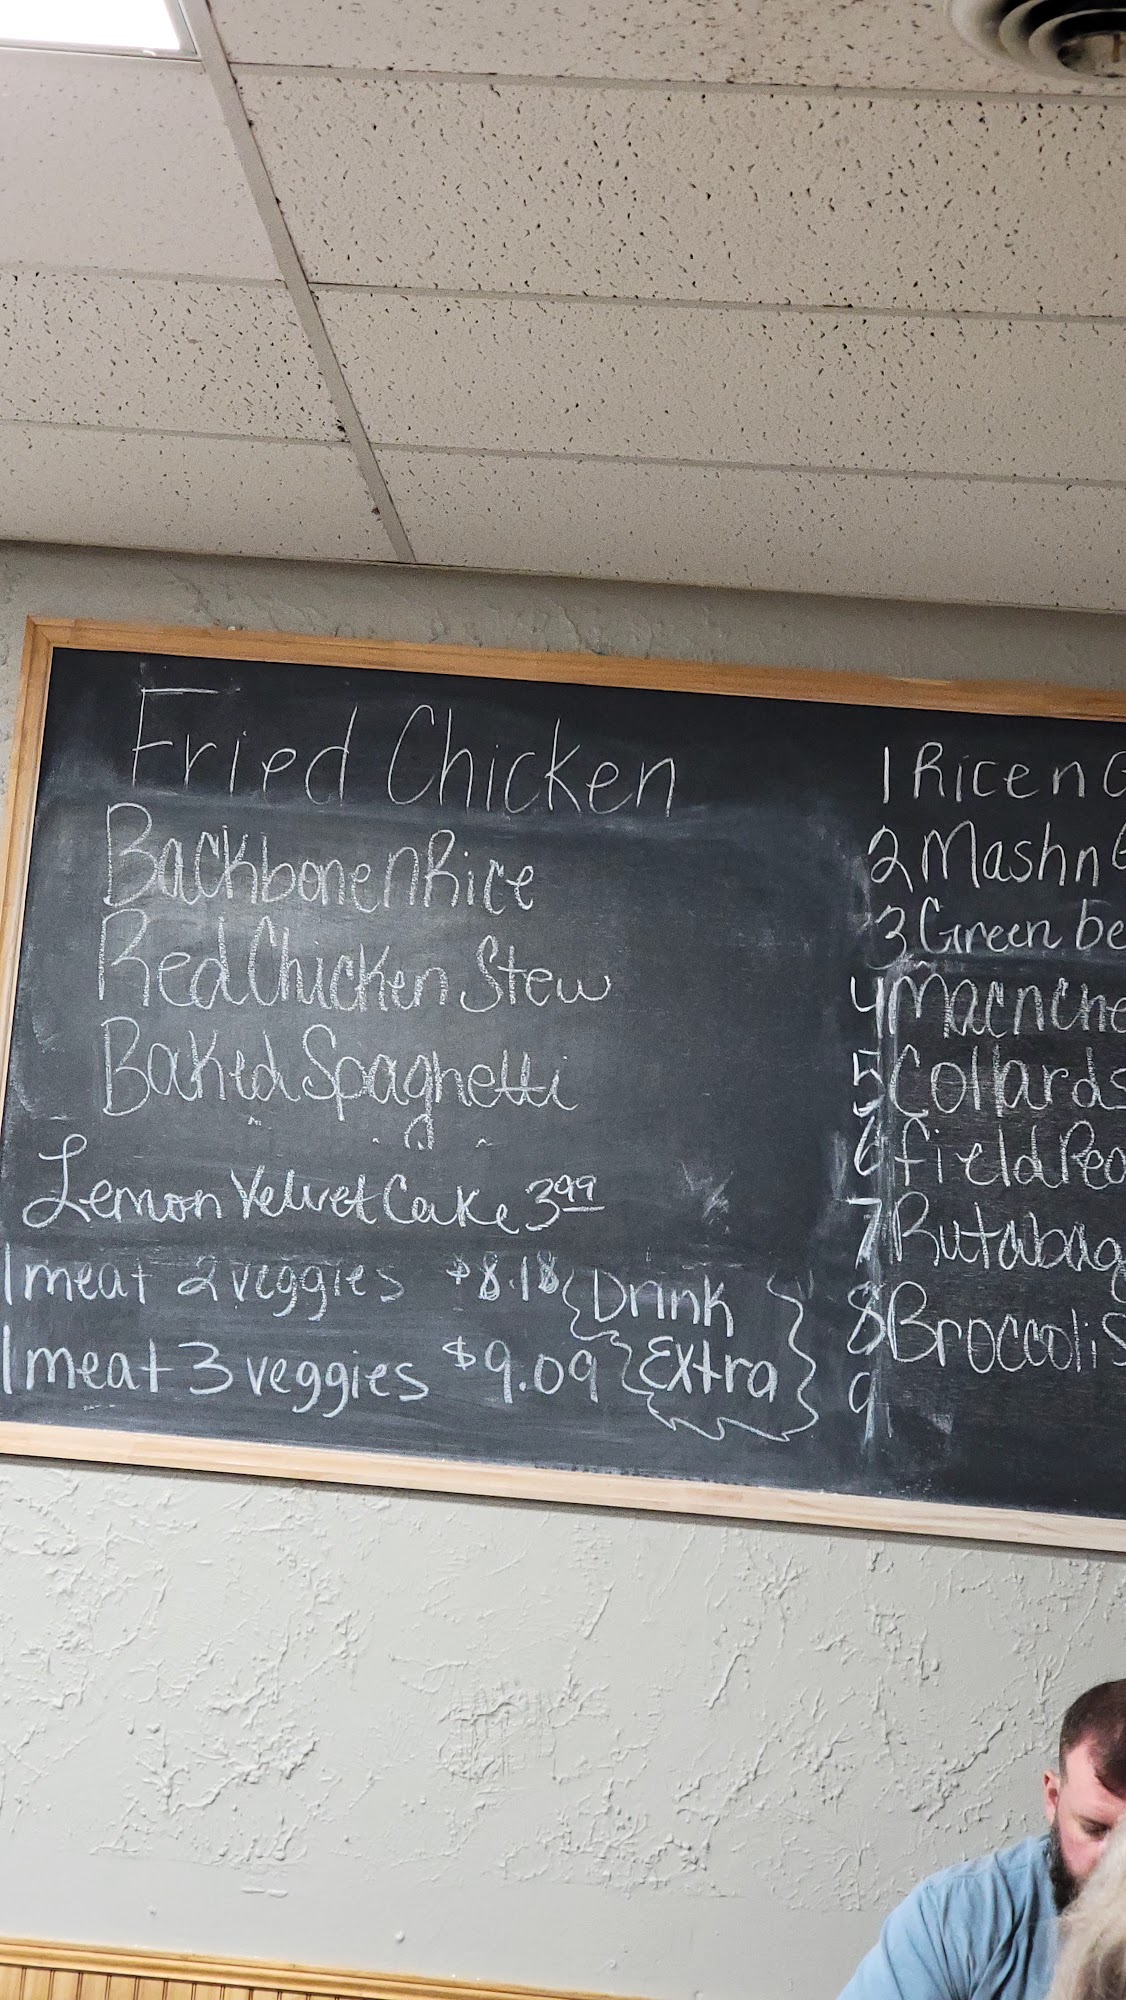 Fried Chicken
BackbonenRice
Red Chicken Stew
Baked Spaghetti
Lemon Velvet Cake 3.99
1 meat 2 veggies $8.18
1 meat 3 veggies $9.09
Drink
Extra
1 Rice n G
2 Mash n G
3 Green be
4 Macnche
5 Collards
6 field Pea
7 Rutabag
8 Broccoli S
9